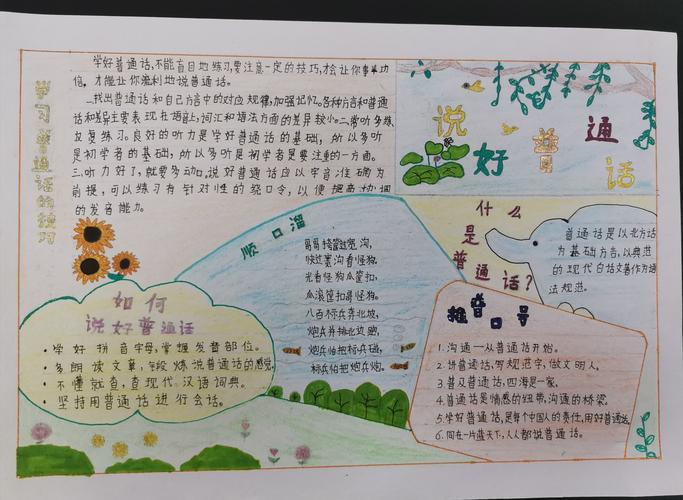 学习普通话的技巧
学好普通话,不能盲目地练习,要注意一定的技巧,才会让你事半功
倍,才能让你流利地说普通话。
一.找出普通话和自己方言中的对应规律,加强记忆。各种方言和普通
话和差异主要表现在语音上,词汇和语法方面的差异较小。二.常听多练,
反复练习。良好的听力是学好普通话的基础,所以多听
是初学者的基础,所以多听是初学者是要注重的一方面。
三.听力好了,就要多动口,说好普通话应以字音准确为
前提,可以练习有针对性的绕口令,以便提高协调
的发音能力。
说好普通话
顺口溜
哥哥挎筐过宽沟,
快过宽沟看怪狗。
光看怪狗瓜筐扣,
瓜滚筐扣哥怪狗。
八百标兵奔北坡,
炮兵并排北边跑,
炮兵怕把标兵碰,
标兵怕碰炮兵炮。
什么是普通话?
普通话是以北方话
为基础方言,以典范
的现代白话文著作为语
法规范。
如何
说好普通话
·学好拼音字母,掌握发音部位。
·多朗读文章,
说普通话的感觉
·不懂就查,查现代汉语词典。
·坚持用普通话进行会话。
推普口号
1.沟通—从普通话开始。
2.讲普通话,写规范字,做文明人。
3.普及普通话,四海是一家。
4.普通话是情感的纽带,沟通的桥梁。
5.学好普通话,是每个中国人的责任,用好普通话,
6.同在一片蓝天下,人人都说普通话。